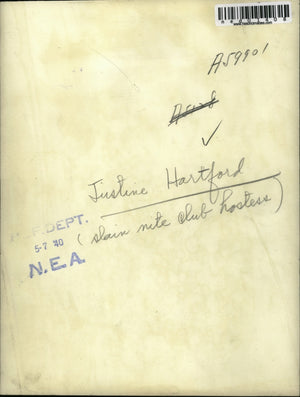 A59901
Justine Hartford
(slain nite club hostess)
DEPT.
5-7 40
N.E.A.